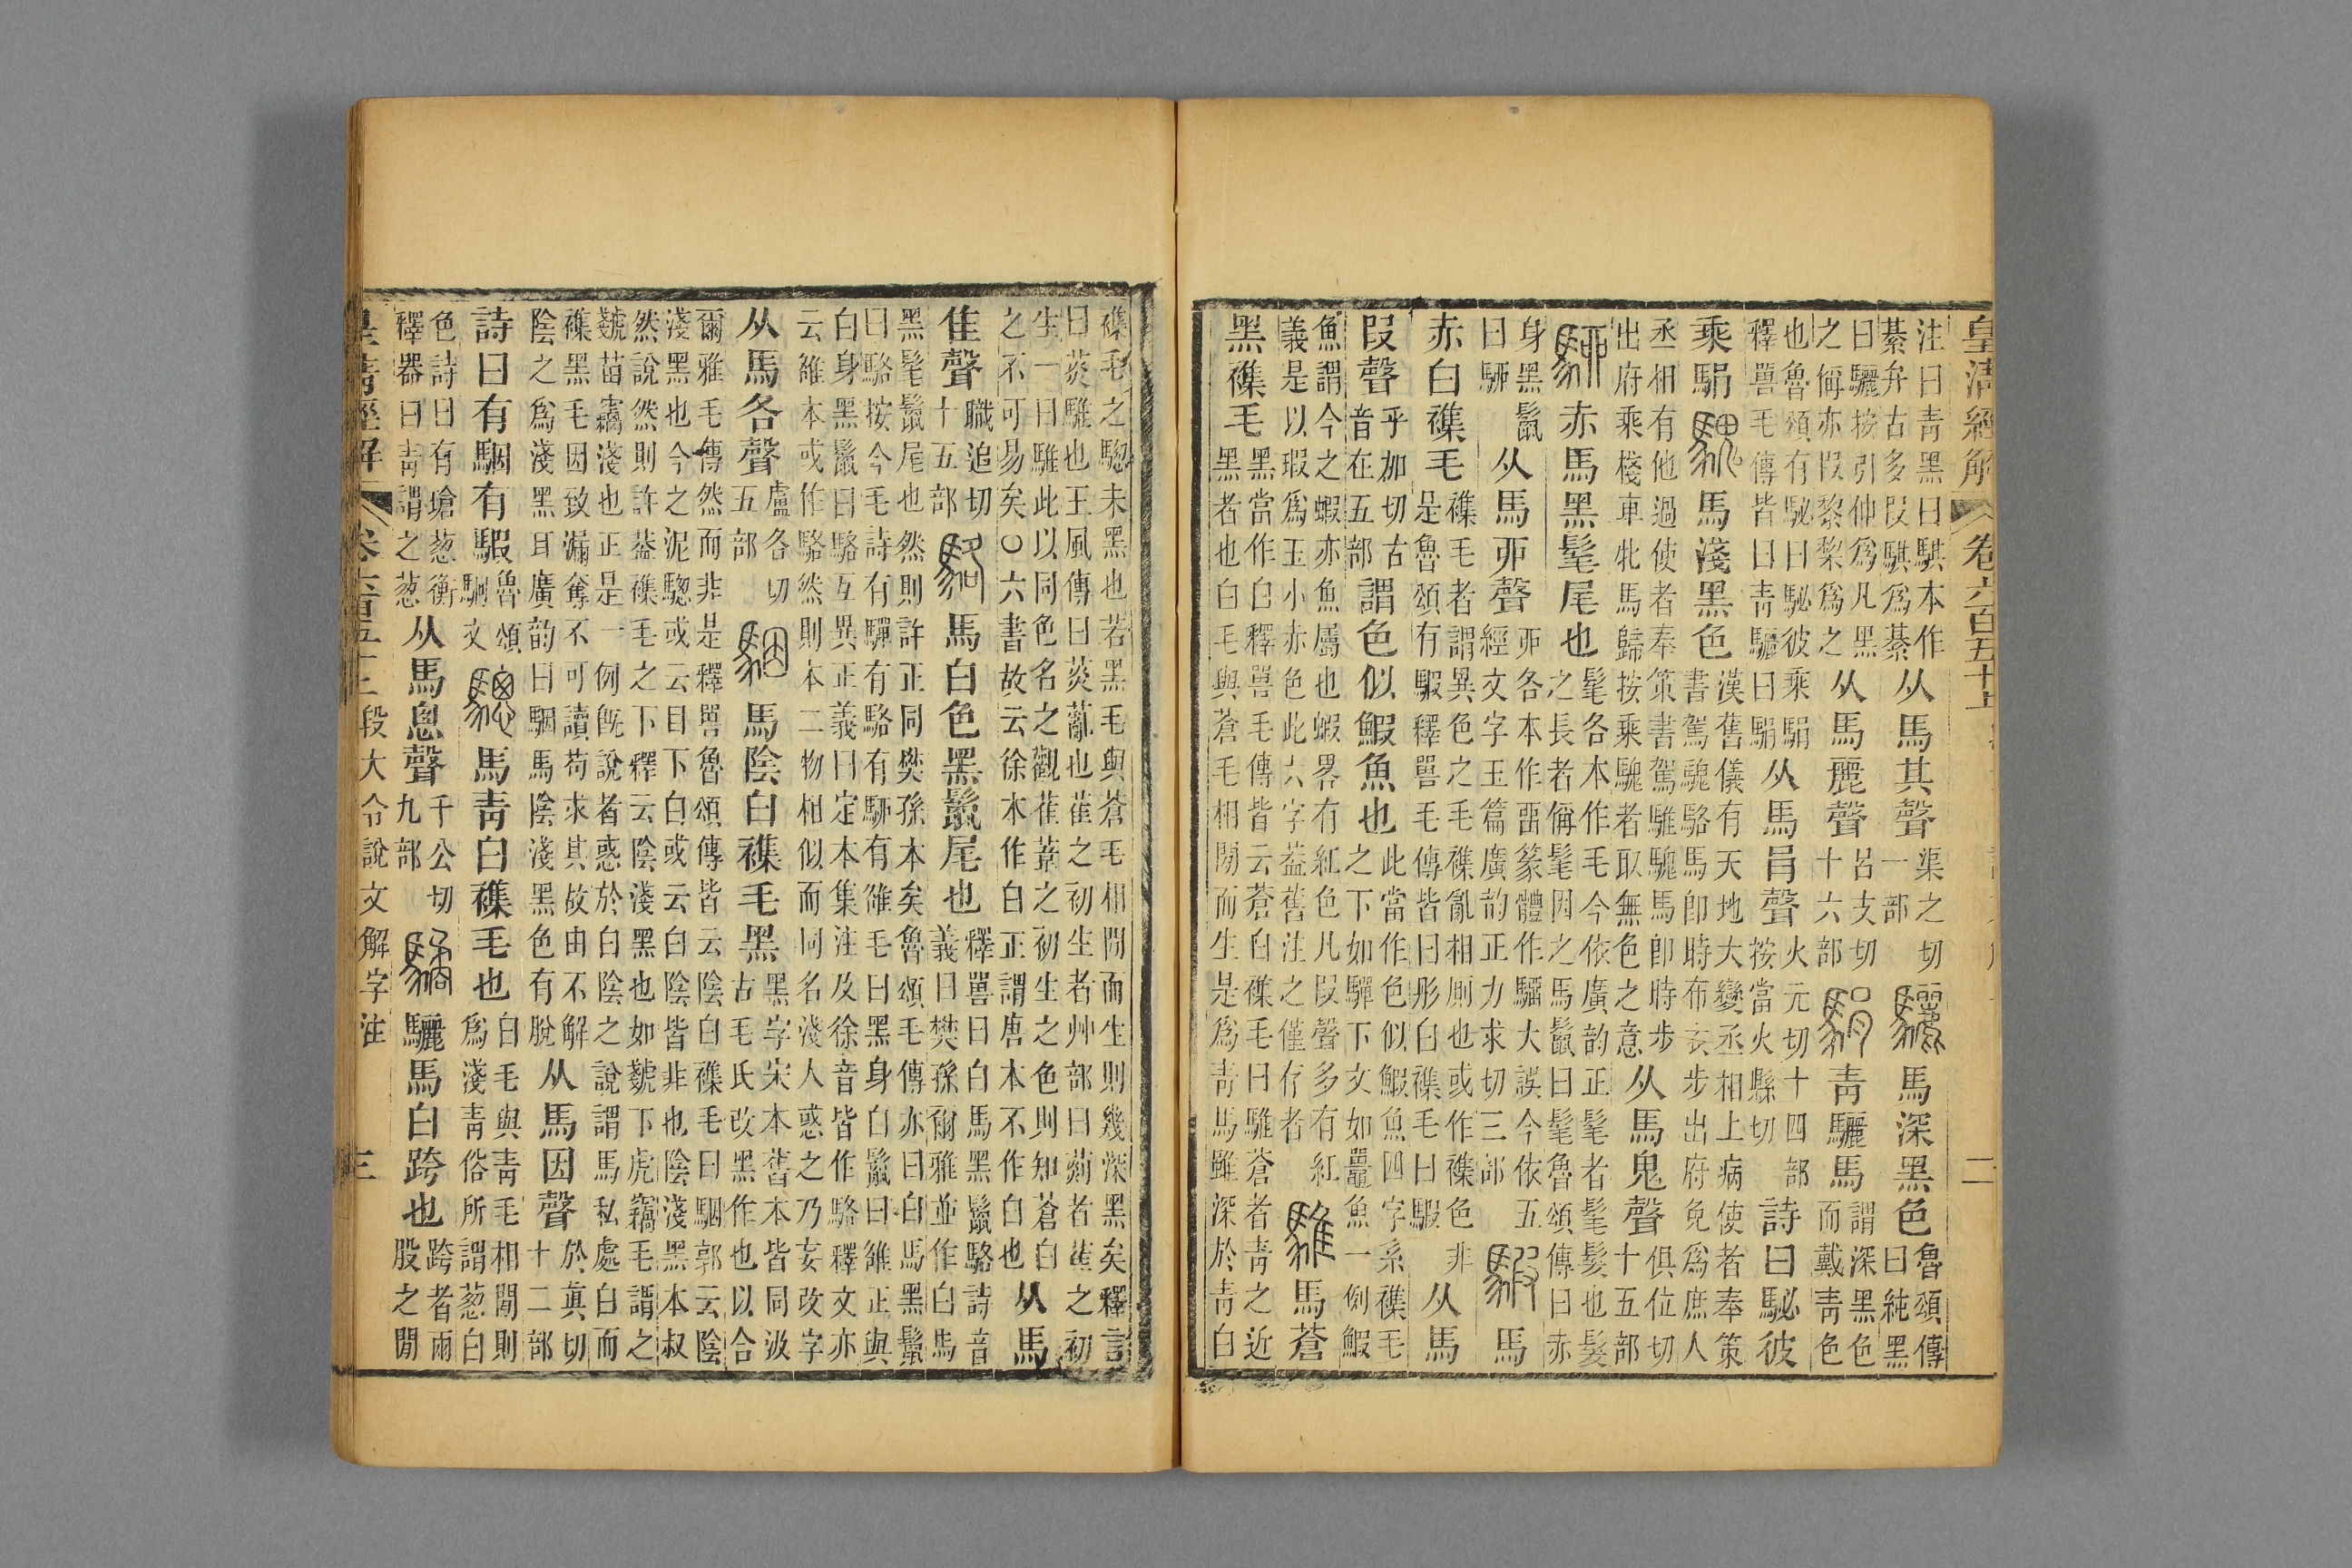 皇清經解 卷六百五十五 二
注曰青黑曰騏本作綦弁古多叚騏爲綦从馬其聲渠之切一部驪馬深黑色魯頌傳曰純黑
曰驪按引伸爲凡黑之偁亦叚黎棃爲之从馬麗聲呂支切十六部駽青驪馬謂深黑色而戴青色
也魯頌有駜曰駜彼乘駽釋嘼毛傳皆曰青驪曰駽从馬肙聲火元切十四部按當火縣切詩曰駜彼
乘駽騩馬淺黑色漢舊儀有天地大變丞相上病使者奉策書駕騩駱馬卽時布衣步出府免爲庶人
丞相有他過使者奉策書駕騅騩馬卽時步出府乘棧車牝馬歸按乘騩者取無色之意从馬鬼聲俱位切十五部
駵赤馬黑髦尾也髦各本作毛今依廣韵正髦者髦髮也髮之長者偁髦因之馬鬛曰髦魯頌傳曰赤
身黑鬛曰駵从馬丣聲丣各本作畱篆體作騮大誤今依五經文字玉篇廣韵正力求切三部騢馬
赤白襍毛襍毛者謂異色之毛襍亂相厠也或作襍色非是魯頌有騢釋嘼毛傳皆曰彤白襍毛曰騢从馬
叚聲乎加切古音在五部謂色似鰕魚也此當作色似鰕魚四字系襍毛之下如驒下文如鼉魚一例鰕
魚謂今之蝦亦魚屬也蝦畧有紅色凡叚聲多有紅義是以瑕爲玉小赤色此六字葢舊注之僅存者騅馬蒼
黑襍毛黑當作白釋嘼毛傳皆云蒼白襍毛曰騅蒼者青之近黑者也白毛與蒼毛相閒而生是爲青馬雖深於青白
襍毛之驄未黑也若黑毛與蒼毛相閒而生則幾深黑矣釋言曰菼騅也王風傳曰菼薍也萑之初生者艸部曰薍者萑之初
生一曰騅此以同色名之觀萑葦之初生之色則知蒼白之不可易矣○六書故云徐本作白正謂唐本不作白也从馬
隹聲職追切十五部駱馬白色黑鬛尾也釋嘼曰白馬黑鬛駱詩音義曰樊孫爾雅並作白馬
黑髦鬛尾也然則許正同樊孫本矣魯頌毛傳亦曰白馬黑鬛曰駱按今毛詩有驒有駱有駵有雒毛曰黑身白鬛曰雒正與
白身黑鬛曰駱互異正義曰定本集注及徐音皆作駱釋文亦云雒本或作駱然則本二物相似而同名淺人惑之乃妄改字
从馬各聲盧各切五部駰馬陰白襍毛黑黑字宋本舊本皆同汲古毛氏改黑作也以合
爾雅毛傳然而非是釋嘼魯頌傳皆云陰白襍毛曰駰郭云陰淺黑也今之泥驄或云目下白或云白陰皆非也陰淺黑本叔
然說然則許葢襍毛之下釋云陰淺黑也如虦下虎竊毛謂之虦苗竊淺也正是一例旣說者惑於白陰之說謂馬私處白而
襍黑毛因致漏奪不可讀苟求其故由不解陰之爲淺黑耳廣韵曰駰馬陰淺黑色有脫从馬因聲於真切十二部
詩曰有駰有騢魯頌駉文驄馬青白襍毛也白毛與青毛相閒則爲淺青俗所謂葱白
色詩曰有瑲葱衡釋器曰青謂之葱从馬悤聲千公切九部驈驪馬白跨也跨者兩股之閒
皇清經解 卷六百五十五 段大令說文解字注 三